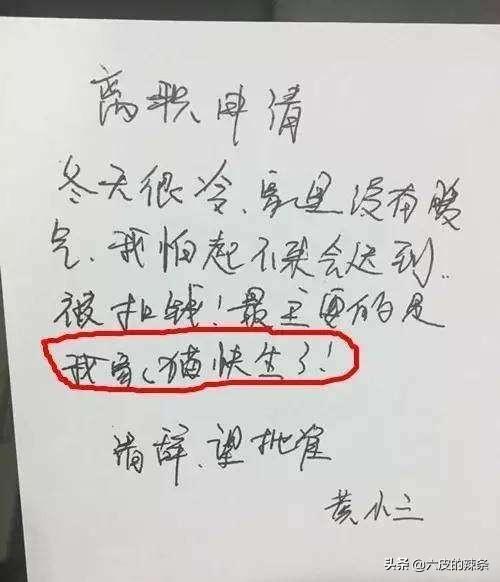 离职申请
冬天很冷、家里没有暖
气、我怕起不来会迟到..
被扣钱！最主要的是
我家猫快生了！
请辞、望批准
黄小三
头条 @六皮的辣条